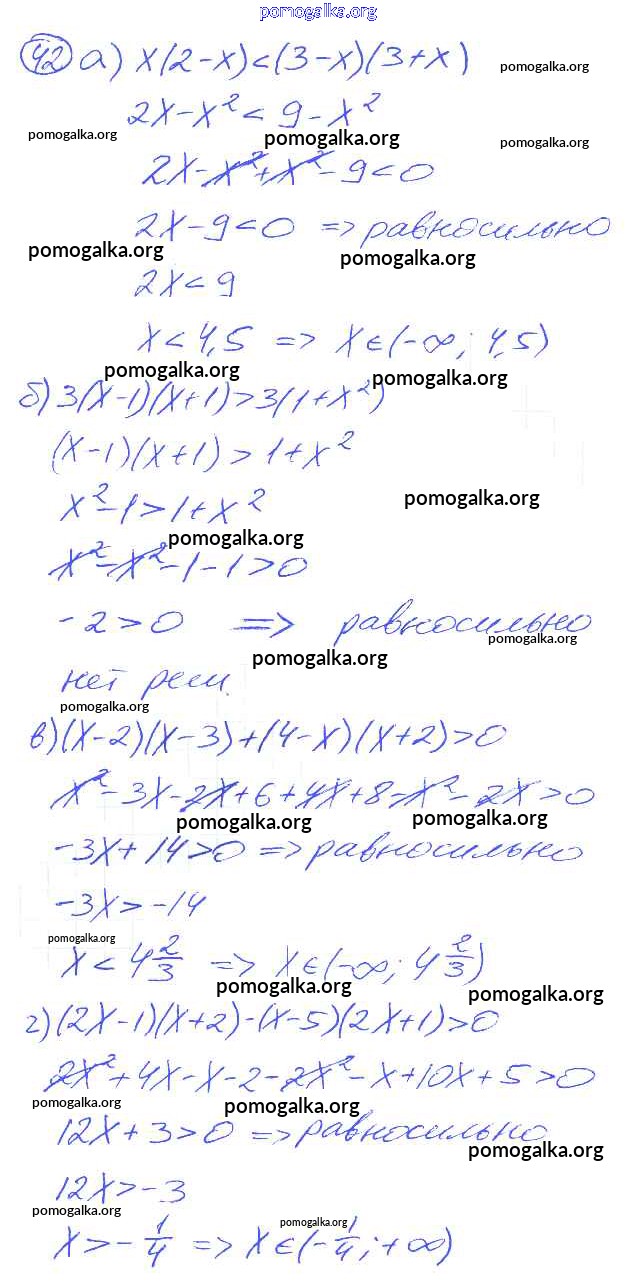 pomogalka.org
42 а) x(2-x)<(3-x)(3+x) pomogalka.org
2x-x²<9-x²
pomogalka.org pomogalka.org pomogalka.org
2x-x²+x²-9<0
2x-9<0 => равносильно
pomogalka.org pomogalka.org
2x<9
x<4,5 => x∈(-∞; 4,5)
pomogalka.org pomogalka.org
б) 3(x-1)(x+1)>3(1+x²)
(x-1)(x+1)>1+x²
x²-1>1+x² pomogalka.org
pomogalka.org
x²-x²-1-1>0
-2>0 => равносильно
pomogalka.org
pomogalka.org
нет реш.
pomogalka.org
в) (x-2)(x-3)+(4-x)(x+2)>0
x²-3x-2x+6+4x+8-x²-2x>0
pomogalka.org pomogalka.org
-3x+14>0 => равносильно
-3x>-14
pomogalka.org
x<4 2/3 => x∈(-∞; 4 2/3)
pomogalka.org pomogalka.org
г) (2x-1)(x+2)-(x-5)(2x+1)>0
2x²+4x-x-2-2x²-x+10x+5>0
pomogalka.org pomogalka.org
12x+3>0 => равносильно
pomogalka.org
12x>-3
pomogalka.org pomogalka.org
x>-1/4 => x∈(-1/4; +∞)